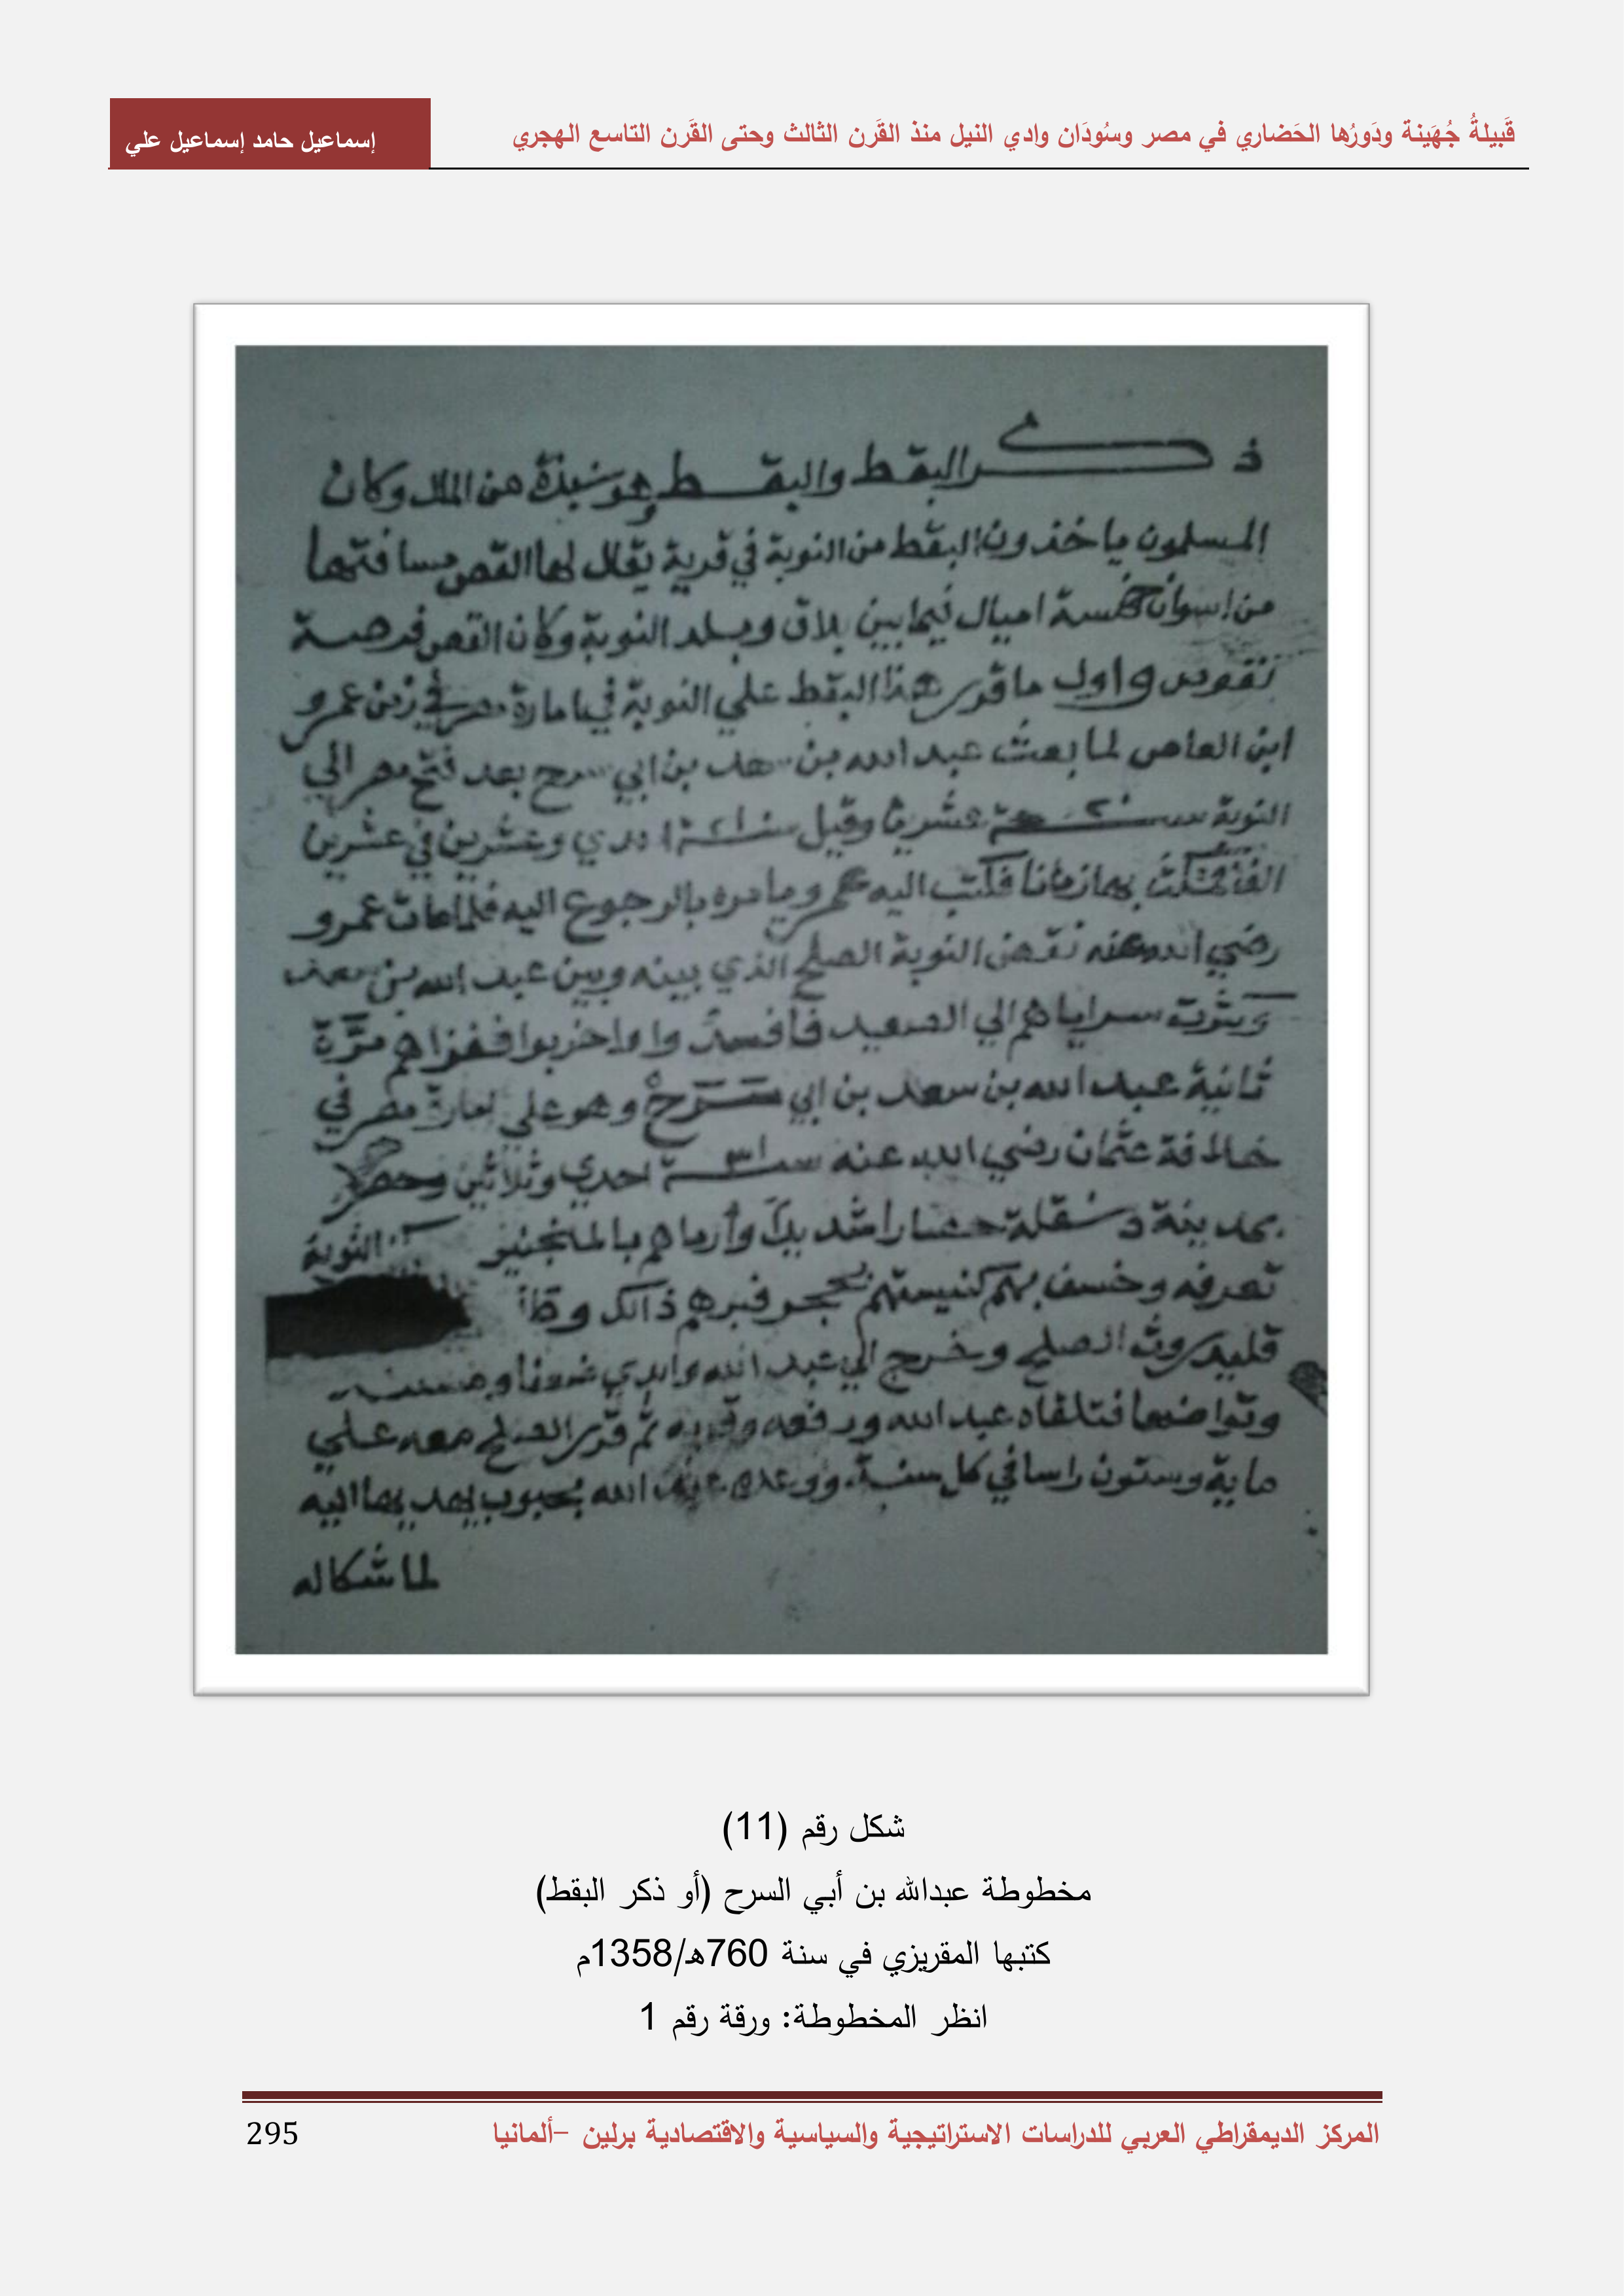 قَبيلةُ جُهَينة ودَورُها الحَضاري في مصر وسُودَان وادي النيل منذ القَرن الثالث وحتى القَرن التاسع الهجري
إسماعيل حامد إسماعيل علي
ذكر البقط والبقط هو نبذة من المال وكان
المسلمون ياخذون البقط من النوبة في قرية يقال لها القصر مسافتها
من اسوان خمسة اميال فيما بين بلاق وبلد النوبة وكان القصر فرصة
لقوص واول ما قرر هذا البقط علي النوبة في امارة عمرو
ابن العاص لما بعث عبد الله بن سعد بن ابي سرح بعد فتح مصر الي
النوبة سنة عشرين وقيل سنة احدي وعشرين في عشرين
الفا فمكث بها زمانا فكتب اليه عمرو يامره بالرجوع اليه فلما مات عمرو
رضي الله عنه نقض النوبة الصلح الذي بينه وبين عبد الله بن سعد
وكثرت سراياهم الي الصعيد فأفسدوا واخربوا فغزاهم مرّة
ثانية عبد الله بن سعد بن ابي سَرَحْ وهو علي امارة مصر في
خلافة عثمان رضي الله عنه سنة احدي وثلاثين وحصر
بمدينة دنقلة حصارا شديدا وأرماهم بالمنجنيق النوبة
تعرفه وخسف بهم كنيستهم بحجر فبهرهم ذالك
قليدروث الصلح وخرج الي عبد الله وابدي ضعفا ومسكنة
وتواضعا فتلقاه عبد الله ورفعه وقربه ثم قرر الصلح معه علي
ماية وستون راسا في كل سنة ووعده عبد الله بحبوب يهديها اليه
لما شكا له
شكل رقم (11)
مخطوطة عبدالله بن أبي السرح (أو ذكر البقط)
كتبها المقريزي في سنة 760هـ/1358م
انظر المخطوطة: ورقة رقم 1
المركز الديمقراطي العربي للدراسات الاستراتيجية والسياسية والاقتصادية برلين –ألمانيا
295